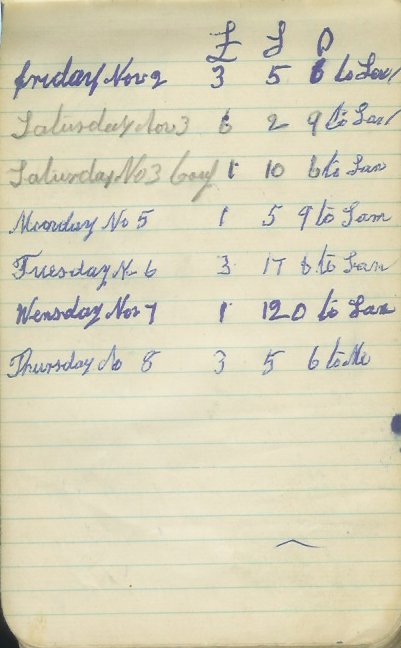 £ S D
Friday Nov 2 3 5 6 to Sam
Saturday Nov 3 6 2 9 to Sam
Saturday No 3 1 10 6 to Sam
Monday No 5 1 5 9 to Sam
Tuesday No 6 3 17 6 to Sam
Wensday Nov 7 1 12 0 to Sam
Thursday No 8 3 5 6 to Me